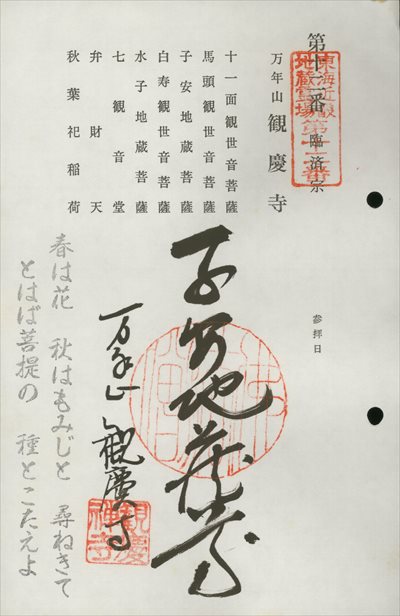 第十二番 臨済宗
地蔵霊場
第十二番
万年山 観慶寺
参拝日
十一面観世音菩薩
馬頭観世音菩薩
子安地蔵菩薩
白寿観世音菩薩
水子地蔵菩薩
七観音堂
弁財天
秋葉祀稲荷
子安地蔵尊
万年山 観慶寺
観慶禅寺
春は花 秋はもみじと 尋ねきて
とはば菩提の 種とこたえよ